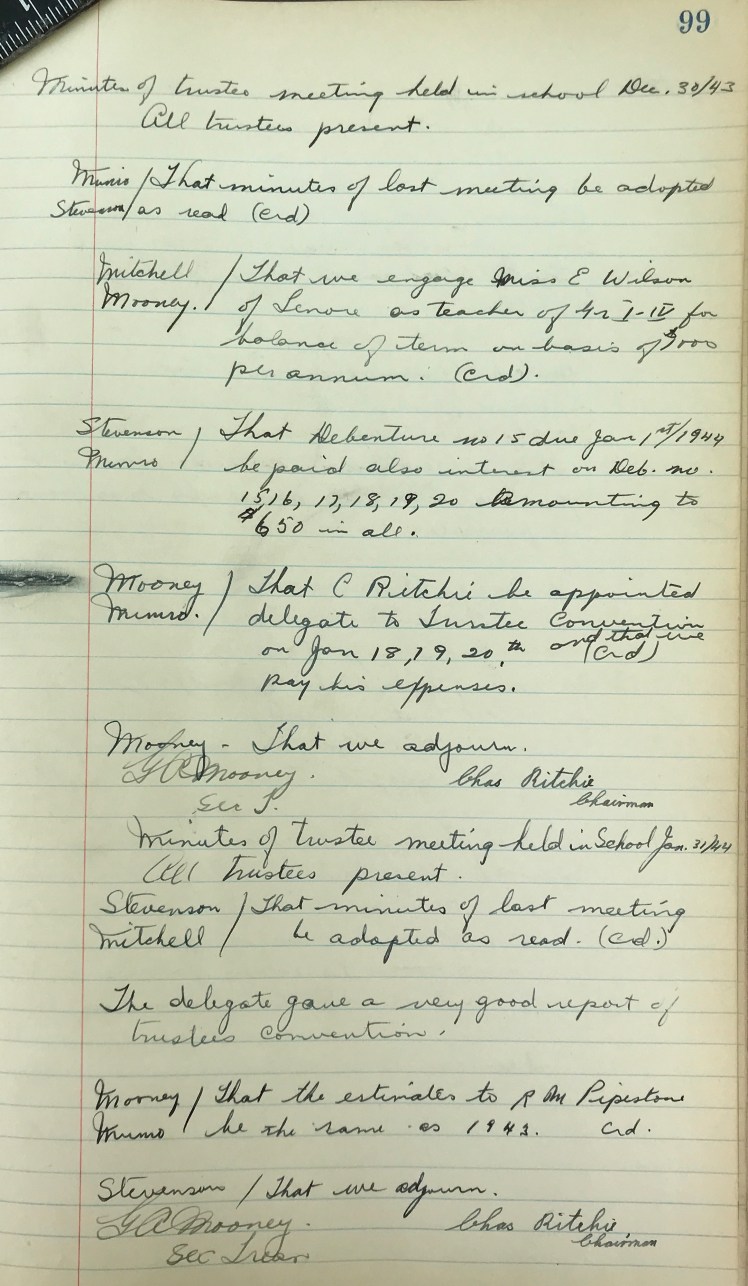 99
Minutes of trustee meeting held in school Dec. 30/43
All trustees present.
Munro / That minutes of last meeting be adopted
Stevenson / as read (Crd)
Mitchell / That we engage Miss E Wilson
Mooney. / of Lenore as teacher of Gr I-IV for
balance of term on basis of $
per annum. (Crd).
Stevenson / That Debenture no 15 due Jan 1st/1944
Munro / be paid also interest on Deb. no.
15, 16, 17, 18, 19, 20 amounting to
$650 in all.
Mooney / That C Ritchie be appointed
Munro. / delegate to Trustee Convention
on Jan 18, 19, 20th and that we
(Crd)
pay his expenses.
Mooney - That we adjourn.
G A Mooney. Chas Ritchie
Sec T. Chairman
Minutes of trustee meeting held in School Jan. 31/44
All trustees present.
Stevenson / That minutes of last meeting
Mitchell / be adopted as read. (Cd.)
The delegate gave a very good report of
trustees convention.
Mooney / That the estimates to R M Pipestone
Munro / be the same as 1943. Crd.
Stevenson / That we adjourn.
G A Mooney. Chas Ritchie
Sec Treas Chairman